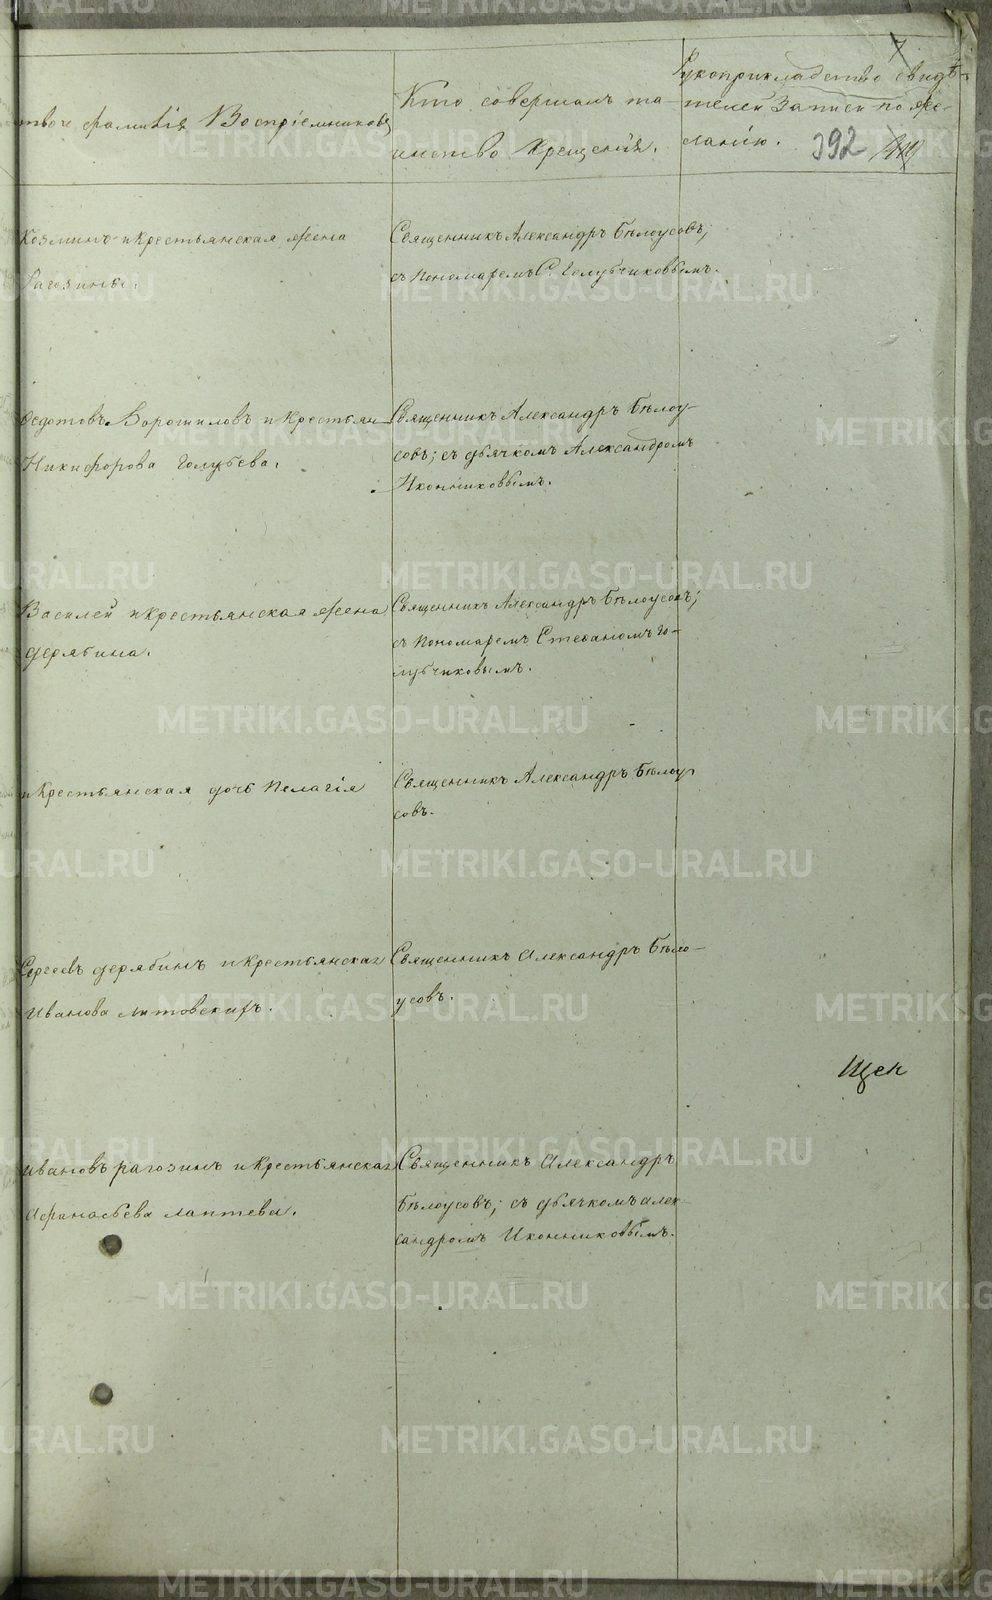 7
тво и фамилія Воспріемниковъ
Кто совершалъ та-
инство Крещенія.
Рукоприкладство свидѣ-
телей записи по же-
ланію.
392
Козминъ и Крестьянская жена
Рагозина.
Священникъ Александръ Бѣлоусовъ;
съ Пономаремъ С. Голубчиковымъ.
Ѳедотовъ Ворошиловъ и Крестьян-
Никифорова Голубева.
Священникъ Александръ Бѣлоу-
совъ; съ дьячкомъ Александромъ
Иконниковымъ.
Василей и Крестьянская жена
Дерябина.
Священникъ Александръ Бѣлоусовъ;
съ Пономаремъ Стефаномъ Го-
лубчиковымъ.
и Крестьянская дочь Пелагія
Священникъ Александръ Бѣлоу-
совъ.
Сергеевъ Дерябинъ и Крестьянская
Иванова Литовскихъ.
Священникъ Александръ Бѣло-
усовъ.
Щен
Ивановъ Рагозинъ и Крестьянская
Афанасьева Лаптева.
Священникъ Александръ
Бѣлоусовъ; съ дьячкомъ Алек-
сандромъ Иконниковымъ.
METRIKI.GASO-URAL.RU